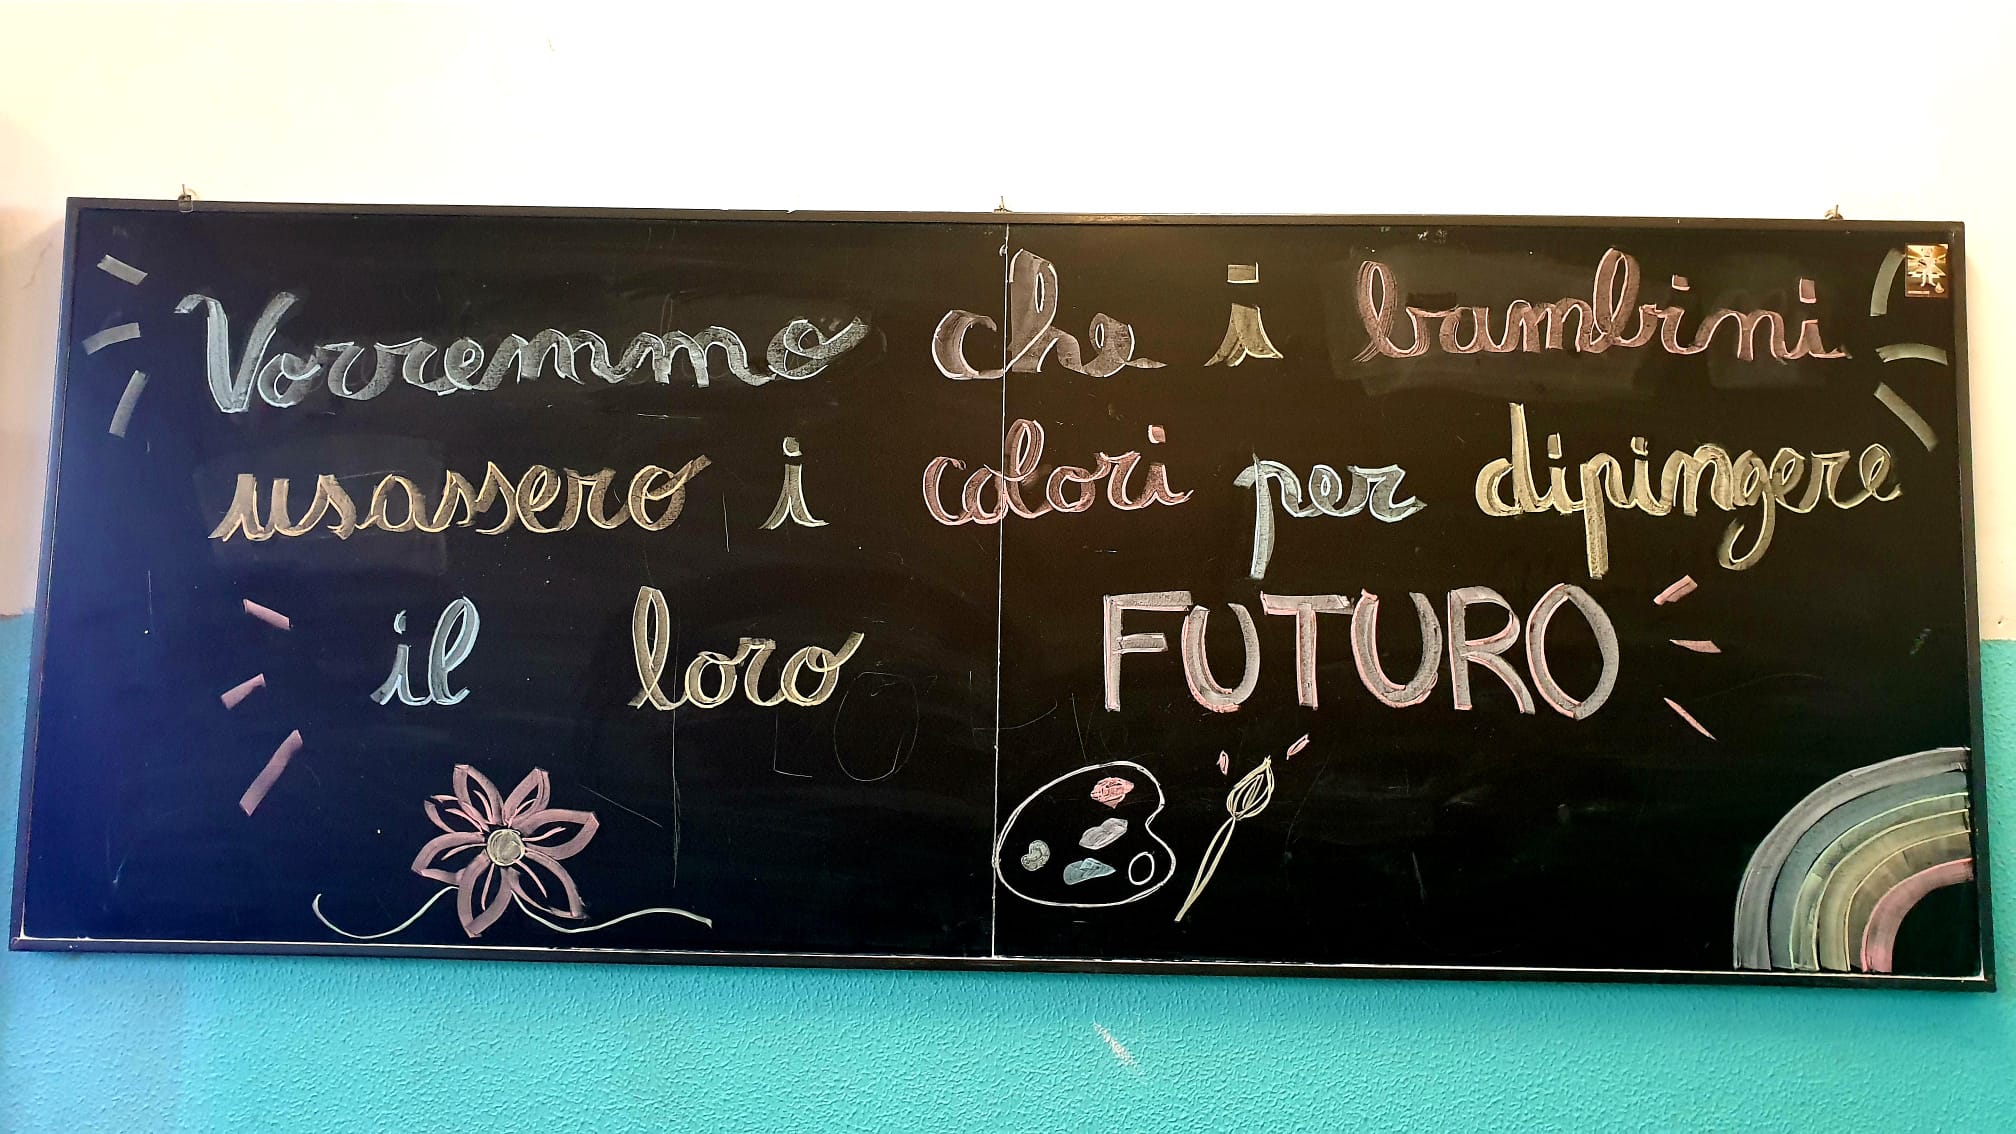 Vorremmo che i bambini
usassero i colori per dipingere
il loro FUTURO